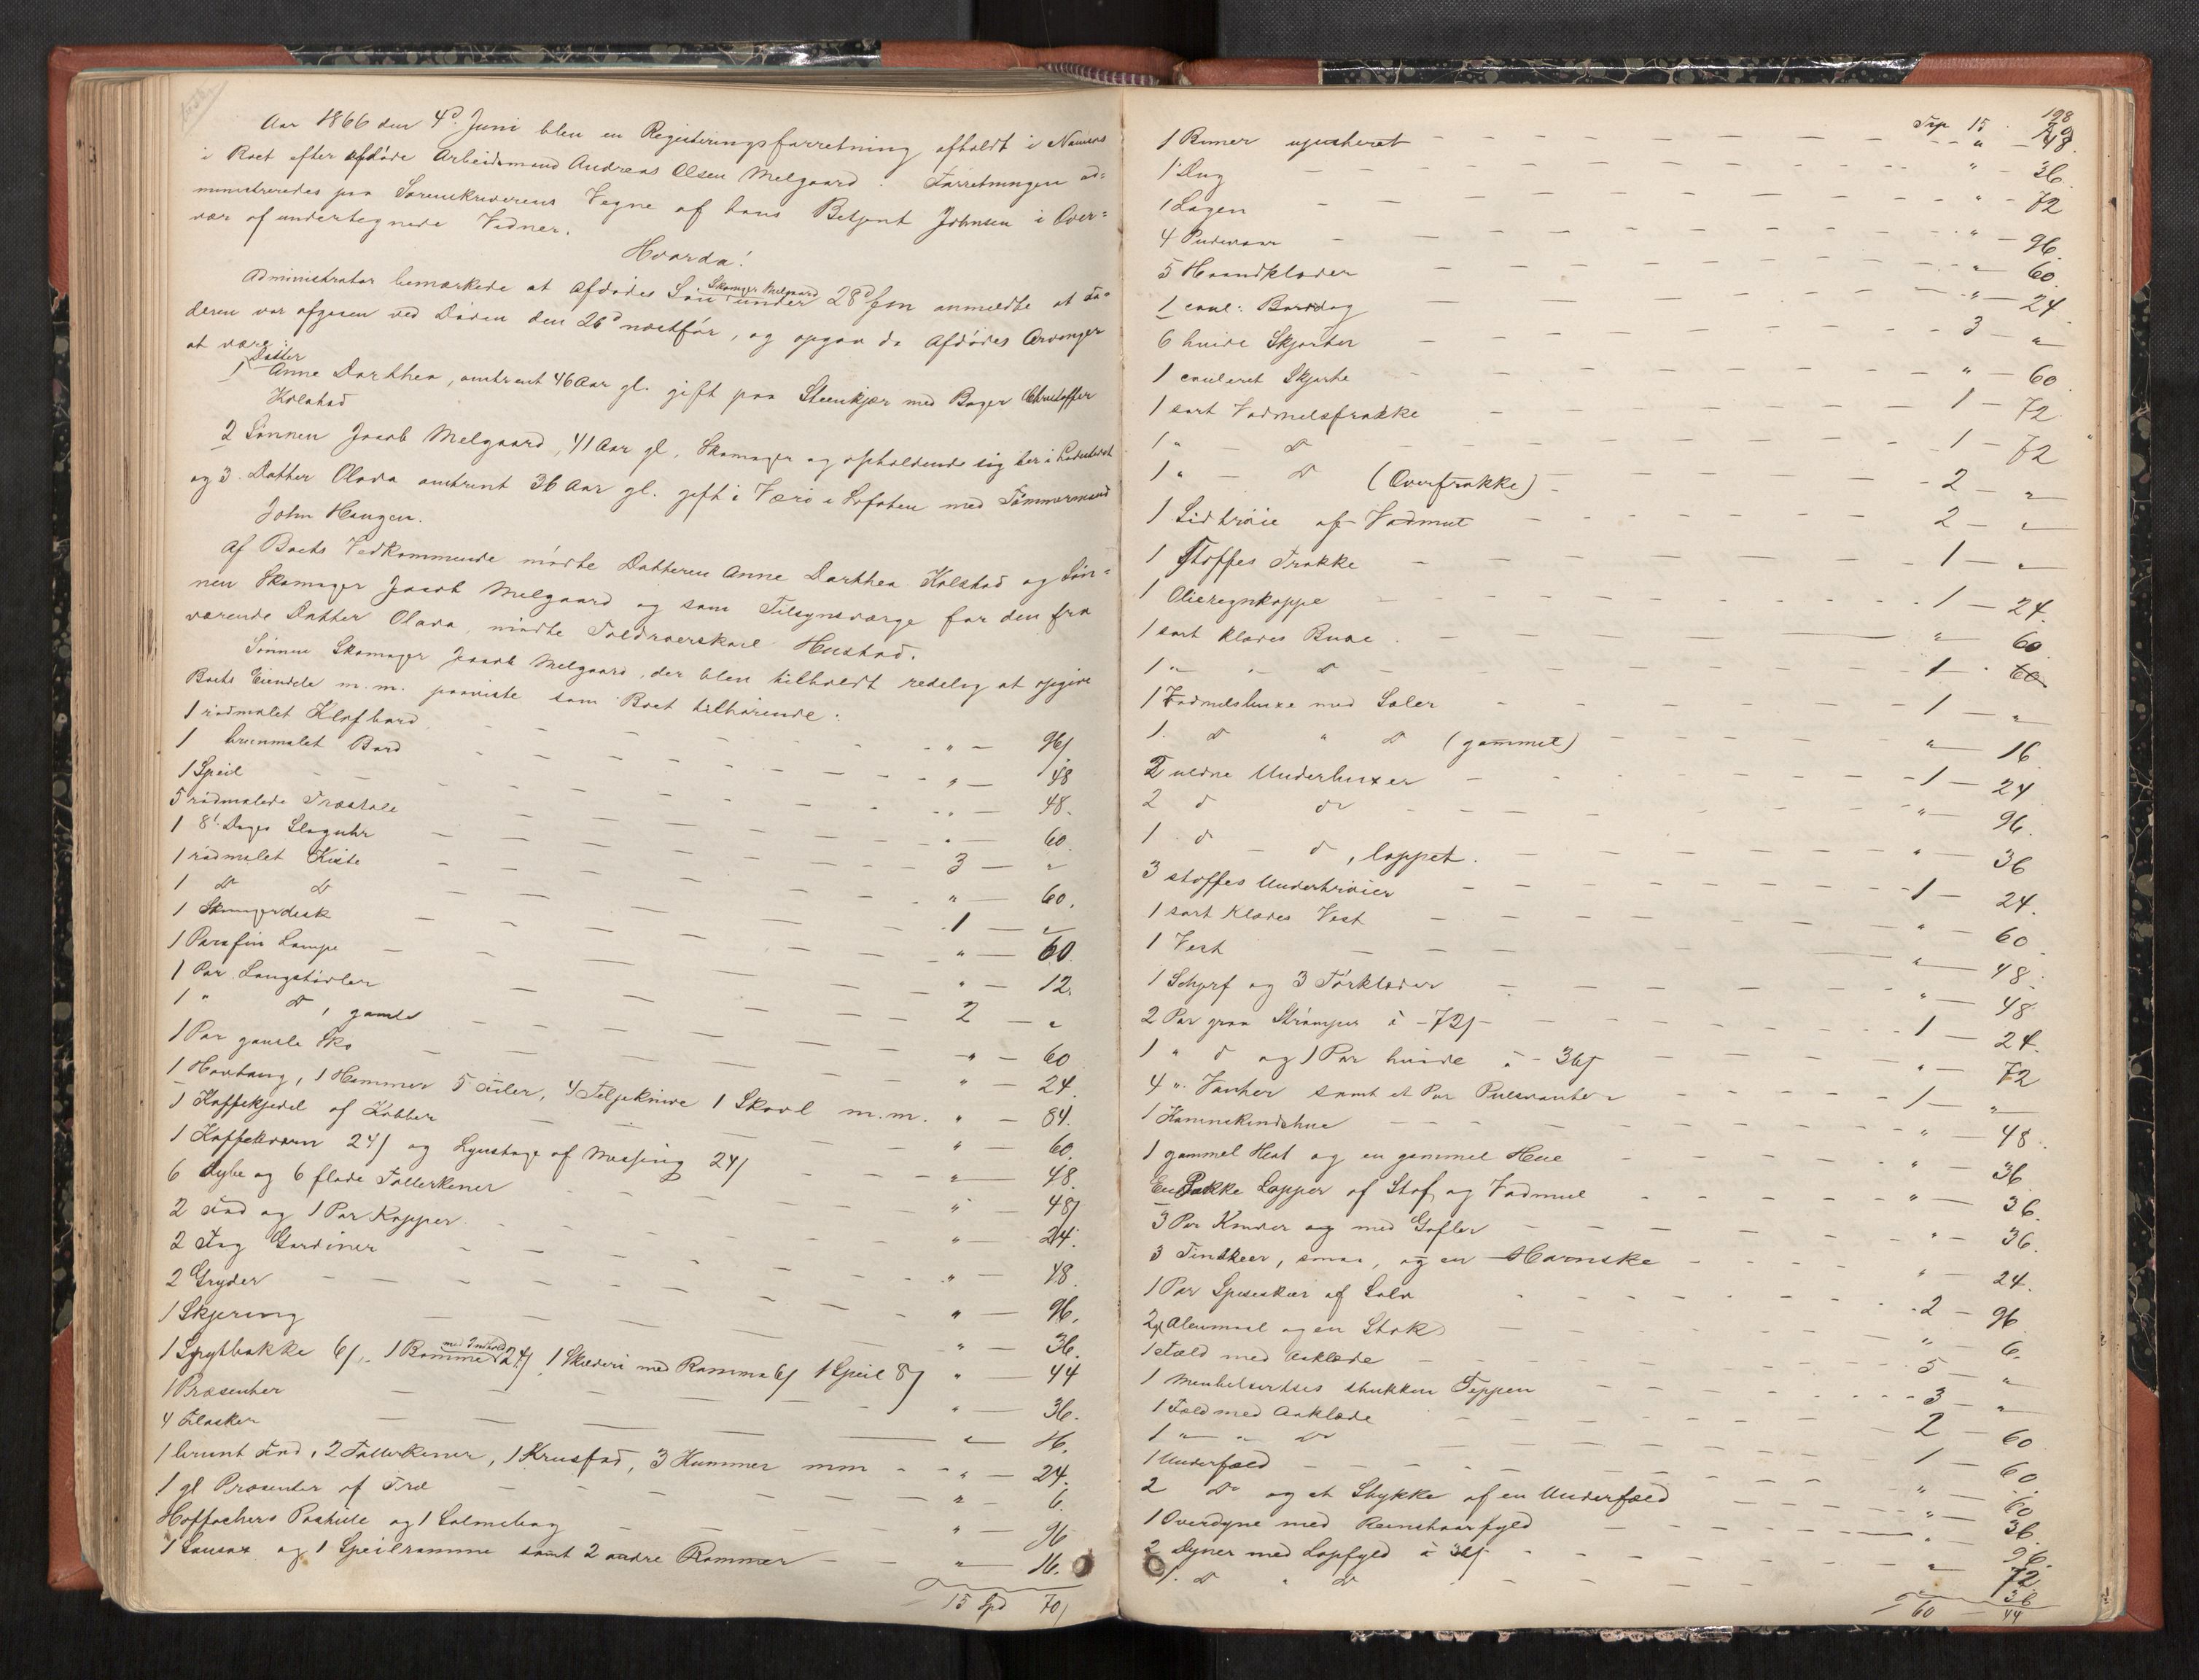 Aar 1866 den 4d Juni blev en Registeringsforretning afholdt i Namsos
i Boet efter afdøde Arbeidsmand Andreas Olsen Melgaard. Forretningen ad=
ministreredes paa Sorenskriverens Vegne af hans Betjent Johnsen i Over=
vær af undertegnede Vidner.
Hvorda!
Administrator bemærkede at Afdødes Søn Skomager Melgaard under 28d f.m. anmeldte at Fa=
deren var afgaaen ved Døden den 26d næstfør, og opgav da Afdødes Arvinger
at være:
1 Datter Anne Dorthea, omtrent 46 Aar gl. gift paa Steenkjær med Bager Christoffer
Kolstad
2 Sønnen Jacob Melgaard, 41 Aar gl, Skomager og opholdende sig her i Ladestedet
og 3. Datter Olava omtrent 36 Aar gl. gift i Værø i Lofoten med Tømmermand
John Haugen.
Af Boets Vedkommende mødte Datteren Anne Dorthea Kolstad og Søn=
nen Skomager Jacob Melgaard og som Tilsynsværge for den fra
værende Datter Olava mødte Toldroerskarl Hustad.
Sønnen Skomager Jacob Melgaard, der blev tilholdt redelig at opgive
Boets Eiendele m.m. paaviste som Boet tilhørende:
1 rødmalet Klafbord " — 96/
1 bruunmalet Bord " — 48
1 Speil " — 48.
5 rødmalede Træstole " — 60
1 8t Dages Slaguhr 3 — "
1 rødmalet Kiste " — 60.
1 Do Do 1 — "
1 Skomagerdisk " — 60
1 Parafin Lampe " — 12.
1 Par Langstøvler 2 — "
1 " Do, gamle " — 60
1 Par gamle Sko " — 24
1 Hovtang, 1 Hammer 5 Filer, 4 Teljeknive 1 Skovl m.m. " — 84.
1 Kaffekjedel af Kobber " — 60.
1 Kaffekværn 24/ og Lysestage af Messing 24/ " — 48.
6 dybe og 6 flade Tallerkener " — 48/
2 Fad og 1 Par Kopper " — 24.
2 Fag Gardiner " — 48.
2 Gryder " — 96.
1 Skjering " — 36.
1 Spytbakke 6/, 1 Bomme med Indhold 24/ 1 Skilderi med Ramme 6/ 1 Speil 8/ " — 44
1 Præsenter " — 36.
4 Flasker " — 16.
1 bruunt Fad, 2 Tallerkener, 1 Krusfad, 3 Kummer m m " — 24.
1 gl Præsenter af Træ " — 6.
Hoffachers Postille og 1 Salmebog " — 96
1 og 1 Speilramme samt 2 andre Rammer " — 16.
15 Spd 70/
198
Trp 15 . 70
1 Rimer ujusteret " — 48.
1 Dug " — 36.
1 Lagen " — 72
4 Pudevaar " — 96.
5 Haandklæder " — 60.
1 coul: Bordog " — 24.
6 hvide Skjorter 3 — "
1 couleret Skjorte " — 60.
1 sort Vadmelsfrakke 1 — 72.
1 " — Do 1 — 72
1 " — Do (Overfrakke) 2 — "
1 Sidtrøie af Vadmel 2 — "
1 Stoffes Frakke 1 — "
1 Olieregnkappe 1 — 24.
1 sort Klædes Buxe " — 60.
1 " " Do 1 . 60
1 Vadmelsbuxe med Seler 1 — "
1. Do " Do (gammel) " 16.
2 uldne Underbuxer 1 — 24
2 do do " — 96.
1. do — do, lappet. " — 36
3 stoffes Undertrøier 1 — 24.
1 sort Klædes Vest " — 60
1 Vest " — 48.
1 Schjerf og 3 Tørklæder " — 48.
2 Par graa Strømper à -72/- 1 — 24.
1 " do og 1 Par hvide à - 36/ " — 72
4 ". Vanter samt et Par Pulsvanter 1 — "
1 Kaninskindshue " — 48.
1 gammel Hat og en gammel Hue " — 36
En Pakke Lapper af Stof og Vadmel " — 36.
3 Par Knive og med Gafler " — 36.
3 Tinskeer, smaa, og en Hornske " — 24.
1 Par Spiseskeer af Sølv 2 — 96
2 Alenmaal og en Stok " — 6.
1 Fæld med Aaklæde 5 — "
1 Teppen 3 — "
1 Fæld med Aaklæde 2 — 60
1 " " Do 1 — 60.
1 Underfæld " — 60
2 Do og et Stykke af en Underfæld " — 36.
1 Overdyne med Reenshaarfyld " — 96.
2 Dyner med Lapfyld à 36/ " — 72.
1. Do " Do " 36
60 — 44